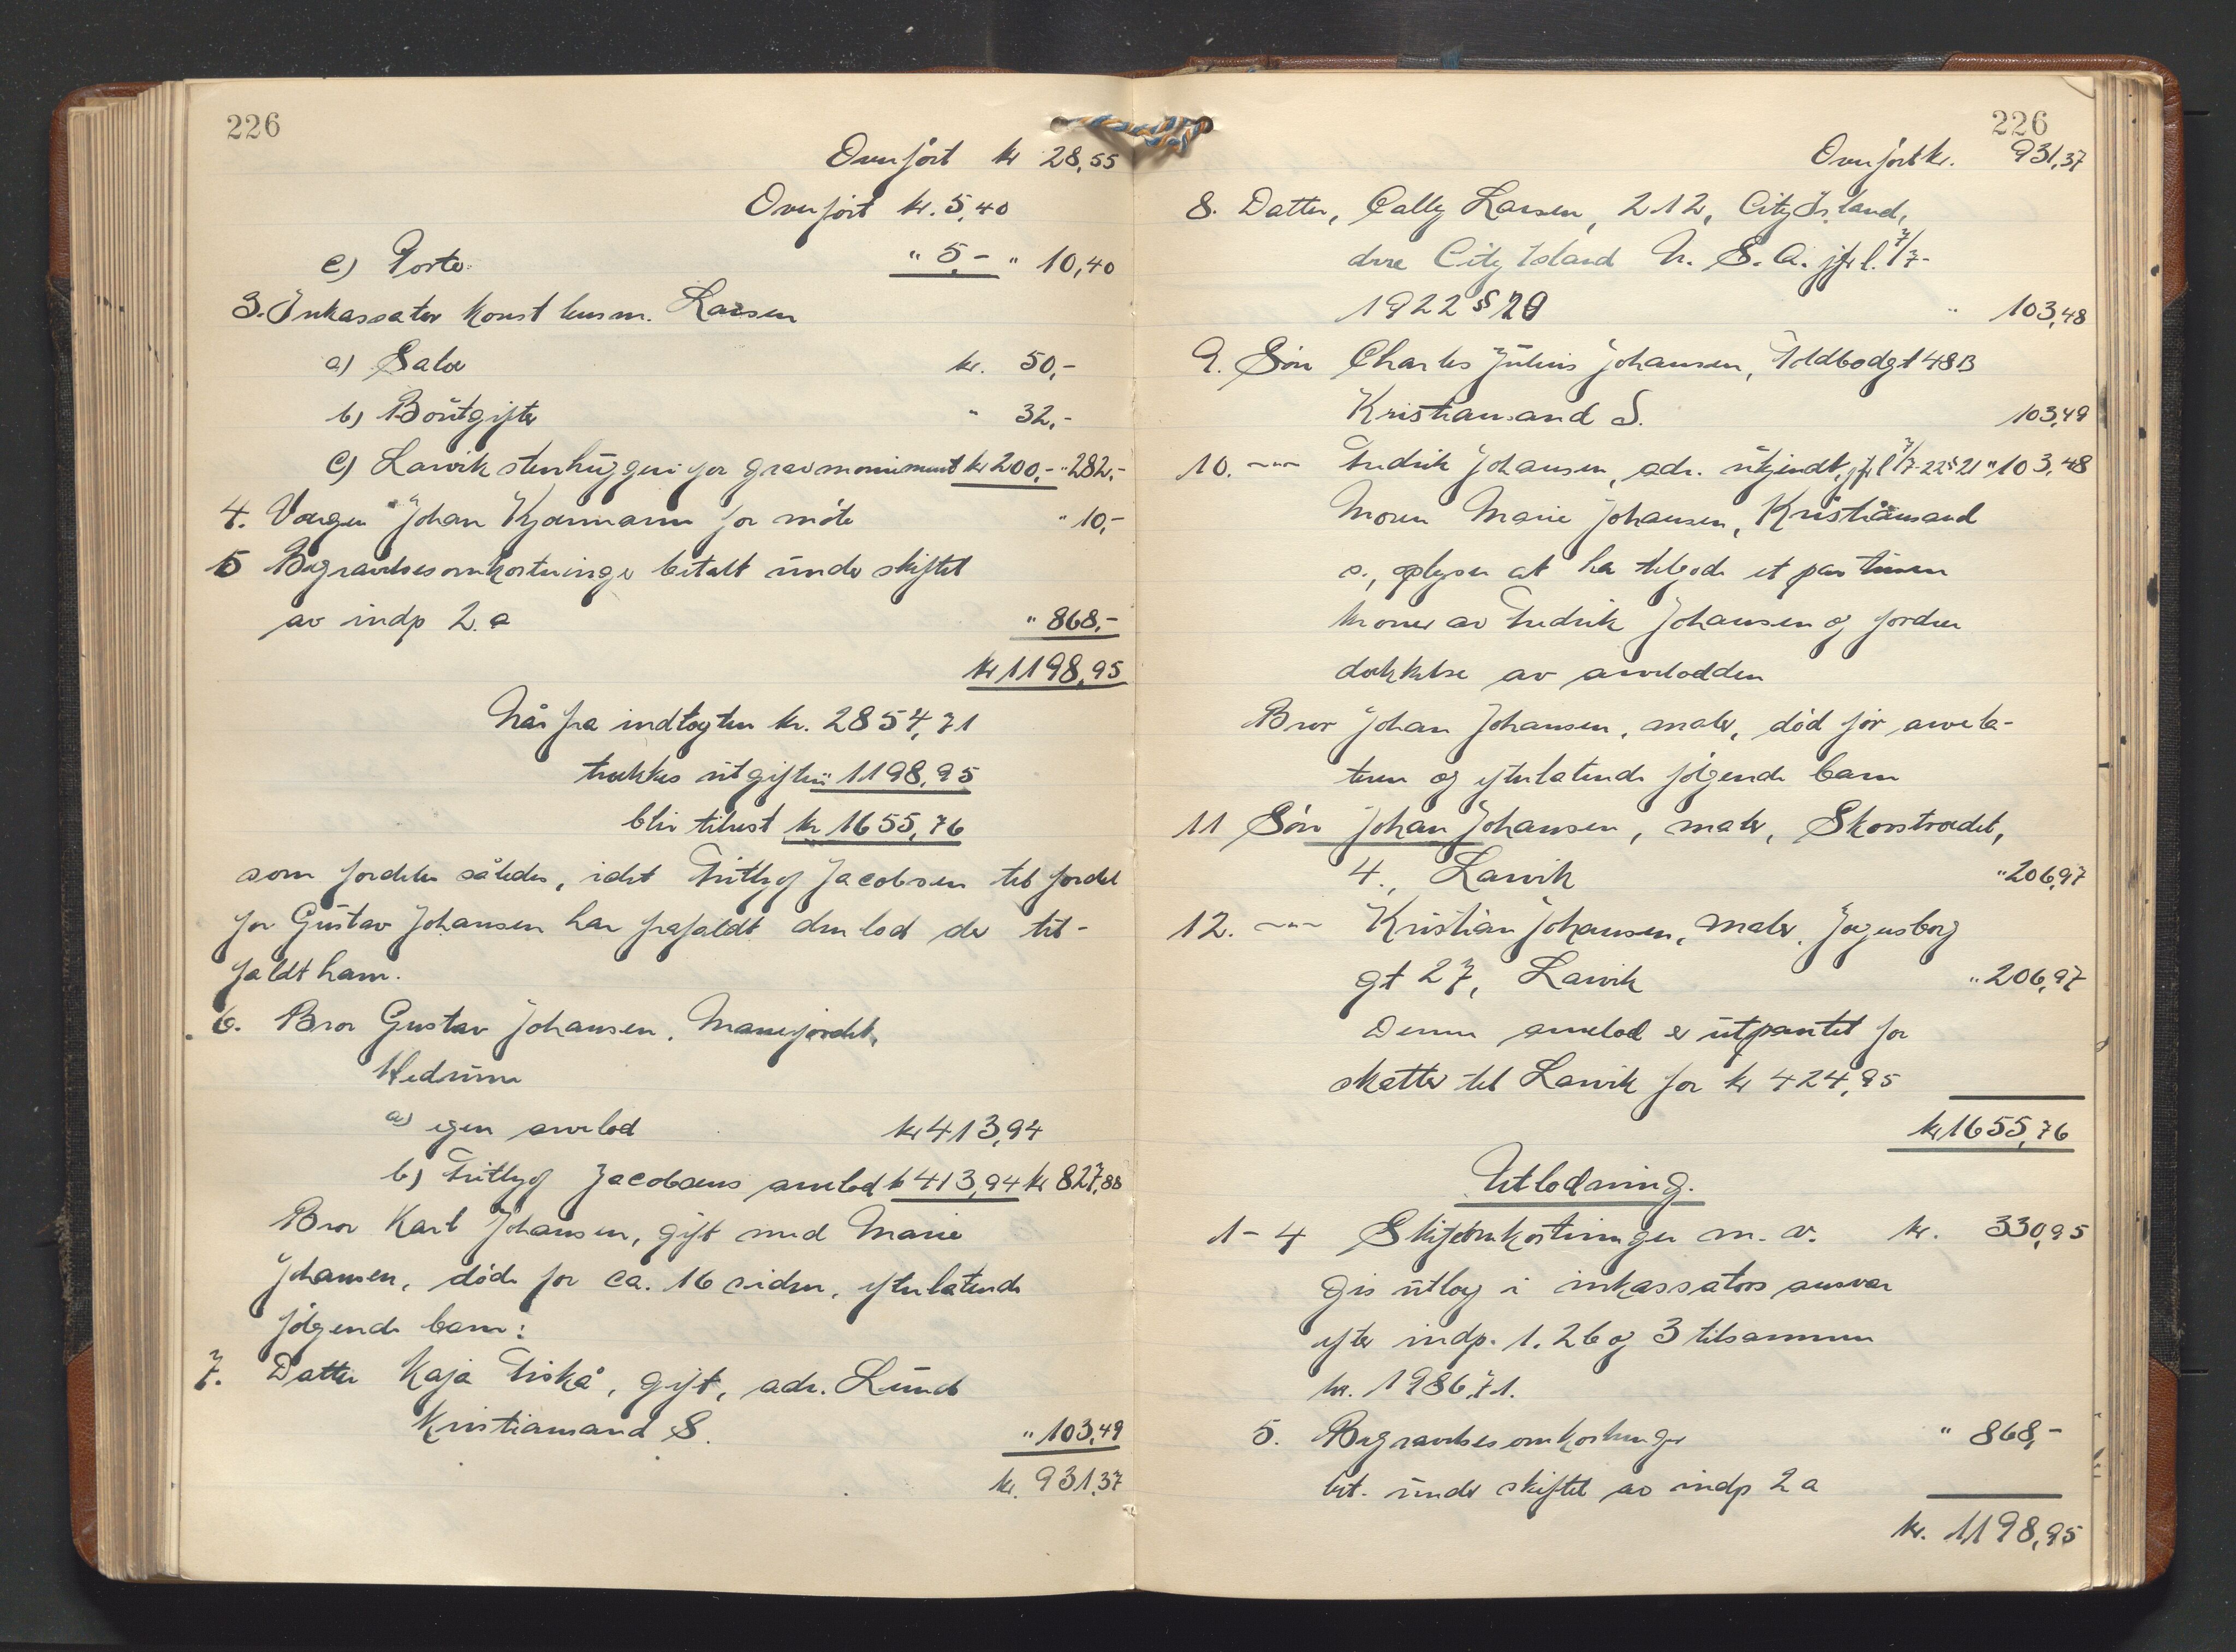 226
Overført kr 28,55
Overført kr. 5,40
c) Porto " 5,- " 10,40
3. Inkassator konst lensm. Larsen
a) Salær kr. 50,-
b) Boutgifter " 32,-
c) Larvik stenhuggeri for gravmonument kr 200,- " 282,-
4. Værgen Johan Kjærmann for møte " 10,-
5 Begravelsesomkostninger betalt under skiftet
av indp 2.a " 868,-
kr 1198,95
Når fra indtægten kr. 2854,71
trækkes utgifter " 1198,95
blir tilrest kr 1655,76
som fordeles således, idet Frithjof Jacobsen til fordel
for Gustav Johansen har frafaldt den lod der til-
faldt ham.
6. Bror Gustav Johansen, Mariejordet,
Hedrum
a) egen arvelod kr 413,94
b) Frithjof Jacobsens arvelod kr 413,94 kr 827,88
Bror Karl Johansen, gift med Marie
Johansen, døde for ca. 16 siden, efterlatende
følgende barn:
7. Datter Kaja Fiskå, gift, adr. Lund
Kristiansand S. " 103,49
kr. 931,37
226
Overført kr. 931,37
8. Datter, Cally Larsen, 212, City Island,
City Island U. S. A. jfr l. 7/7-
1922 § 20 " 103,48
9. Søn Charles Julius Johansen, Toldbodgt 48B
Kristiansand S. 103,49
10. -"- Fredrik Johansen, adr. ukjendt, jfr l 7/7-22 § 21 " 103,48
Moren Marie Johansen, Kristiansand
s., oplyser at ha tilgode et par tusen
kroner av Fredrik Johansen og fordrer
dækkelse av arvelodden
Bror Johan Johansen, maler, død før arvela-
teren og efterlatende følgende barn
11 Søn Johan Johansen, maler, Skorstrædet,
4., Larvik " 206,97
12. -"- Kristian Johansen, maler, Jegersborg
gt 27, Larvik " 206,97
Denne arvelod er utpantet for
skatter til Larvik for kr 424,95
kr 1655,76
Utlodning.
1-4 Skifteomkostninger m. v. kr. 330,95
gis utlæg i inkassators ansvar
efter indp. 1. 2b og 3 tilsammen
kr. 1986,71.
5. Begravelsesomkostninger " 868,-
bet. under skiftet av indp 2 a
kr. 1198,95